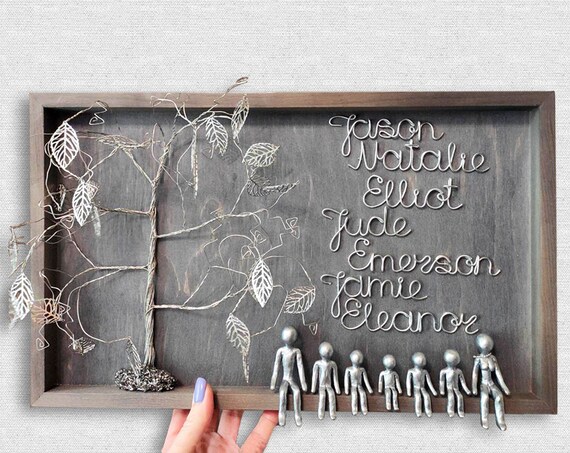 Jason
Natalie
Elliot
Jude
Emerson
Jamie
Eleanor